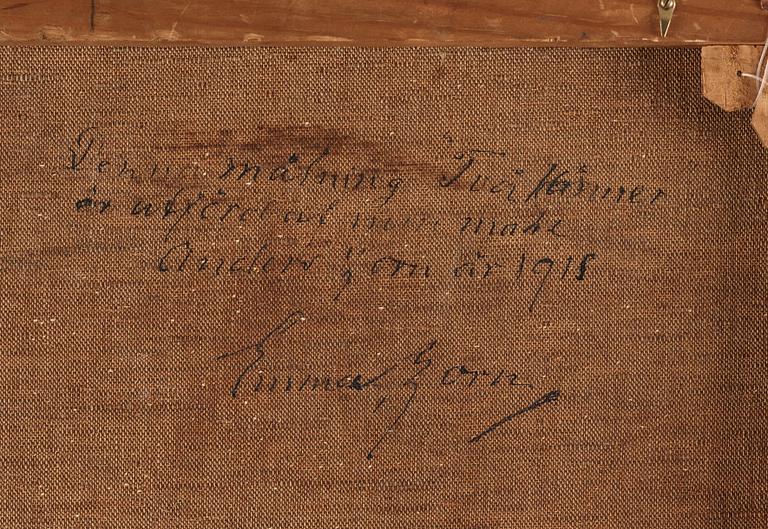 Denna målning "Två Kännor"
är utförd av min make
Anders Zorn år 1915
Emma Zorn